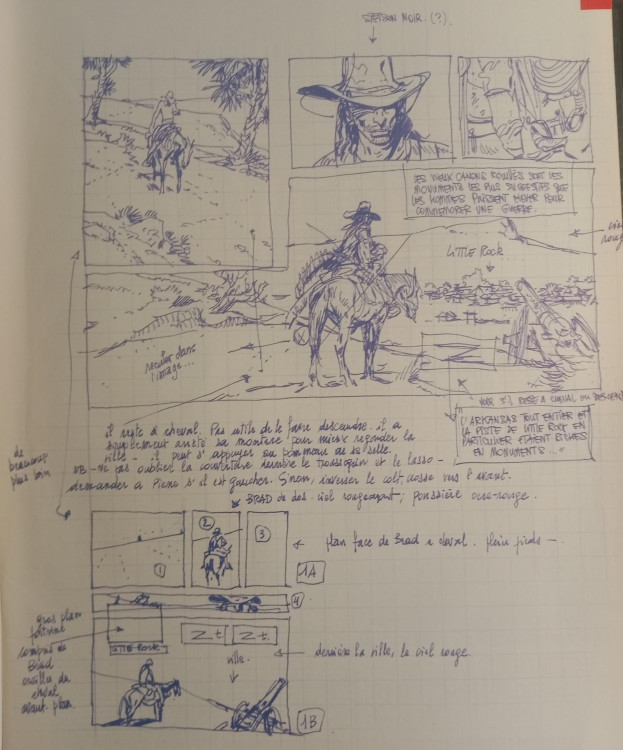 STETSON NOIR. (?).
LES VIEUX CANONS ROUILLÉS SONT LES
MONUMENTS LES PLUS SUGGESTIFS QUE
LES HOMMES PUISSENT
COMMÉMORER UNE GUERRE.
LITTLE ROCK
reculer dans
l'image...
À CHEVAL OU
L'ARKANSAS TOUT ENTIER ET
LA PISTE DE LITTLE ROCK EN
PARTICULIER ÉTAIENT RICHES
EN MONUMENTS...
il reste à cheval. Pas utile de le faire descendre. il a
simplement arrêté sa monture pour mieux regarder la
ville - il peut s'appuyer au pommeau de sa selle.
NB - ne pas oublier la couverture derrière le troussequin et le lasso -
demander à Pierre s'il est gaucher. Sinon, inverser le colt, crosse vers l'avant.
de
beaucoup
plus loin
BRAD de dos. ciel rougeoyant; poussière ocre-rouge.
1
2
3
plan face de Brad à cheval. plein pieds -
1A
4
gros plan
Brad
oreilles du
cheval
avant. plan
LITTLE ROCK
Z t.
Z t.
ville.
derrière la ville, le ciel rouge.
1B